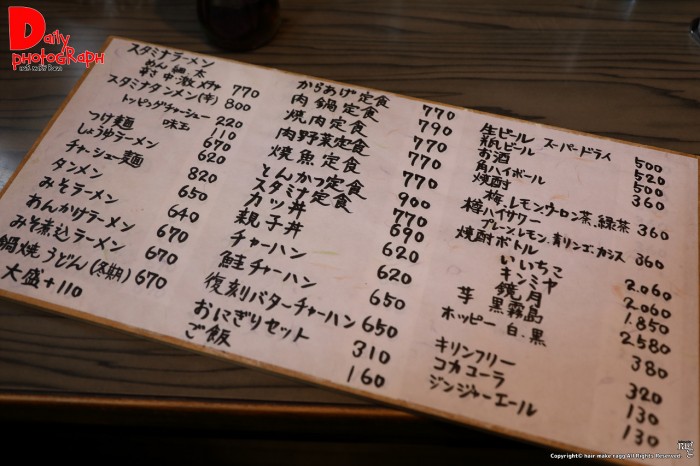 Daily
PHOTOGRAPH
スタミナラーメン
めん 細、太
辛さ 中、激、メチャ 770
スタミナタンメン(辛) 800
トッピングチャーシュー 220
味玉 110
つけ麺 670
しょうゆラーメン 620
チャーシュー麺 820
タンメン 650
みそラーメン 640
あんかけラーメン 670
みそ煮込ラーメン 670
鍋焼うどん(冬期) 670
大盛 +110
からあげ定食 770
肉鍋定食 790
焼肉定食 770
肉野菜定食 770
焼魚定食 770
とんかつ定食 900
スタミナ定食 770
カツ丼 690
親子丼 620
チャーハン 620
鮭チャーハン 650
復刻バターチャーハン 650
おにぎりセット 310
ご飯 160
生ビール スーパードライ 500
瓶ビール 520
お酒 500
角ハイボール 360
焼酎
梅、レモン、ウーロン茶、緑茶 360
樽ハイサワー
プレーン、レモン、青リンゴ、カシス 360
焼酎ボトル
いいちこ 2.060
キンミヤ 2.060
鏡月 1.850
芋 黒霧島 2.580
ホッピー 白、黒 380
キリンフリー 320
コカコーラ 130
ジンジャーエール 130
Copyright© hair make ragg All Rights Reserved.